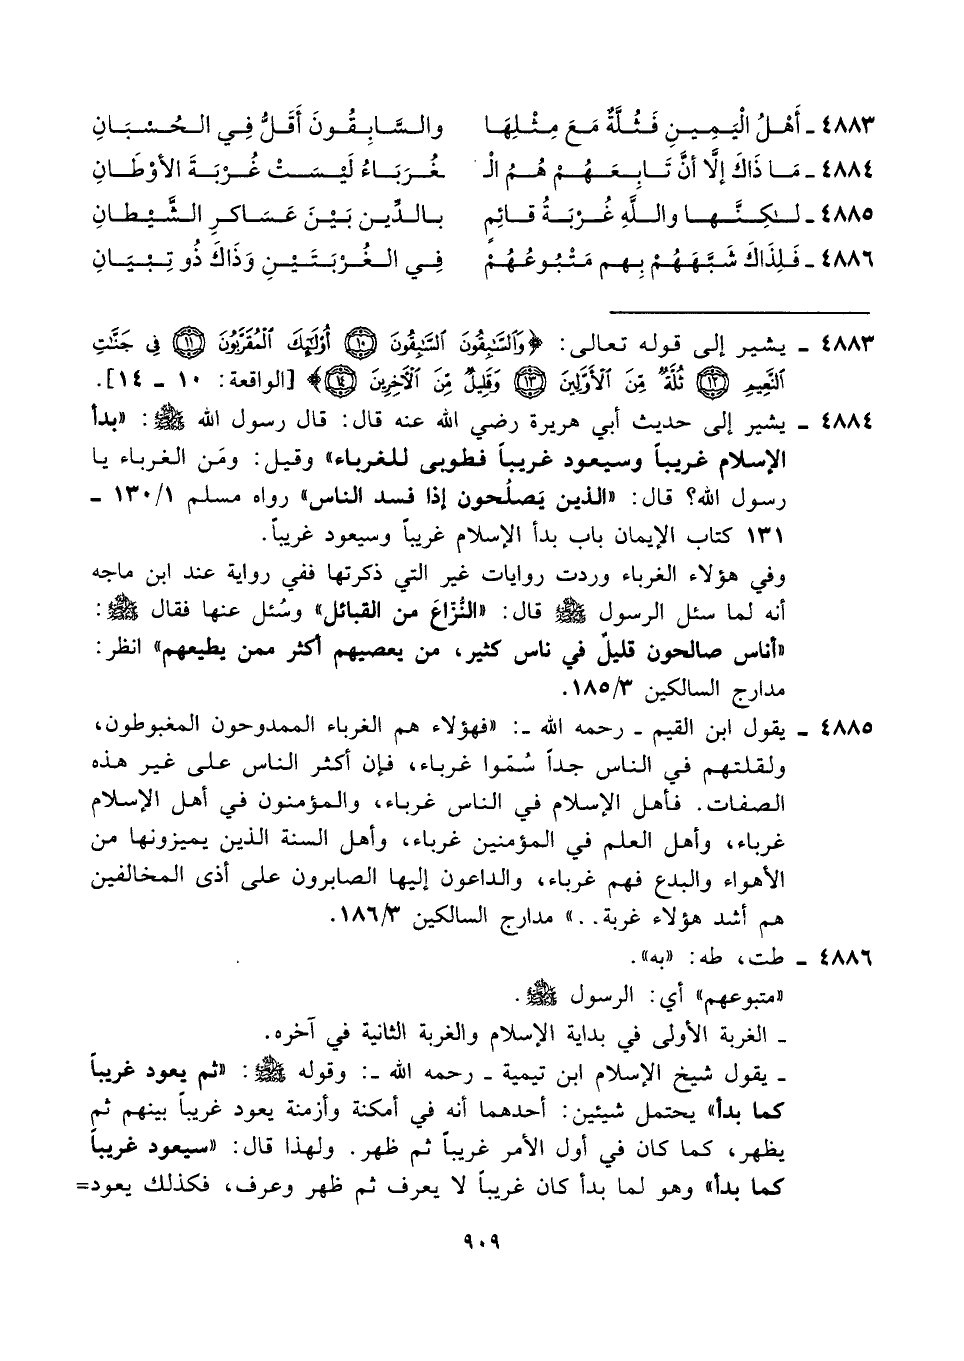 ٤٨٨٣ ـ أَهْلُ الْيَمِينِ فَثُلَّةٌ مَعَ مِثْلِهَا والسَّابِقُونَ أَقَلُّ فِي الحُسْبَانِ
٤٨٨٤ ـ مَا ذَاكَ إلَّا أنَّ تَابِعَهُمْ هُمُ الْـ ـغُرَبَاءُ لَيْسَتْ غُرْبَةَ الأوْطَانِ
٤٨٨٥ ـ لَكِنَّهَا واللَّهِ غُرْبَةُ قائِمٍ بالدِّينِ بَيْنَ عَسَاكرِ الشَّيْطَانِ
٤٨٨٦ ـ فَلِذَاكَ شَبَّهَهُمْ بِهِم مَتْبُوعُهُمْ فِي الغُرْبَتَيْنِ وَذَاكَ ذُو تِبْيَانِ
٤٨٨٣ ـ يشير إلى قوله تعالى: ﴿وَالسَّابِقُونَ السَّابِقُونَ ﴿١٠﴾ أُوْلَٰئِكَ الْمُقَرَّبُونَ ﴿١١﴾ فِي جَنَّاتِ
النَّعِيمِ ﴿١٢﴾ ثُلَّةٌ مِّنَ الْأَوَّلِينَ ﴿١٣﴾ وَقَلِيلٌ مِّنَ الْآخِرِينَ ﴿١٤﴾﴾ [الواقعة: ١٠ ـ ١٤].
٤٨٨٤ ـ يشير إلى حديث أبي هريرة رضي الله عنه قال: قال رسول الله ﷺ: «بدأ
الإسلام غريباً وسيعود غريباً فطوبى للغرباء» وقيل: ومَن الغرباء يا
رسول الله؟ قال: «الذين يَصلُحون إذا فسد الناس» رواه مسلم ١٣٠/١ ـ
١٣١ كتاب الإيمان باب بدأ الإسلام غريباً وسيعود غريباً.
وفي هؤلاء الغرباء وردت روايات غير التي ذكرتها ففي رواية عند ابن ماجه
أنه لما سئل الرسول ﷺ قال: «النُزّاعَ من القبائل» وسُئل عنها فقال ﷺ:
«أناس صالحون قليلٌ في ناس كثير، من يعصيهم أكثر ممن يطيعهم» انظر:
مدارج السالكين ١٨٥/٣.
٤٨٨٥ ـ يقول ابن القيم ـ رحمه الله ـ: «فهؤلاء هم الغرباء الممدوحون المغبوطون،
ولقلتهم في الناس جداً سُمّوا غرباء، فإن أكثر الناس على غير هذه
الصفات. فأهل الإسلام في الناس غرباء، والمؤمنون في أهل الإسلام
غرباء، وأهل العلم في المؤمنين غرباء، وأهل السنة الذين يميزونها من
الأهواء والبدع فهم غرباء، والداعون إليها الصابرون على أذى المخالفين
هم أشد هؤلاء غربة..» مدارج السالكين ١٨٦/٣.
٤٨٨٦ ـ طت، طه: «به».
«متبوعهم» أي: الرسول ﷺ.
ـ الغربة الأولى في بداية الإسلام والغربة الثانية في آخره.
ـ يقول شيخ الإسلام ابن تيمية ـ رحمه الله ـ: وقوله ﷺ: «ثم يعود غريباً
كما بدأ» يحتمل شيئين: أحدهما أنه في أمكنة وأزمنة يعود غريباً بينهم ثم
يظهر، كما كان في أول الأمر غريباً ثم ظهر. ولهذا قال: «سيعود غريباً
كما بدأ» وهو لما بدأ كان غريباً لا يعرف ثم ظهر وعرف، فكذلك يعود=
٩٠٩